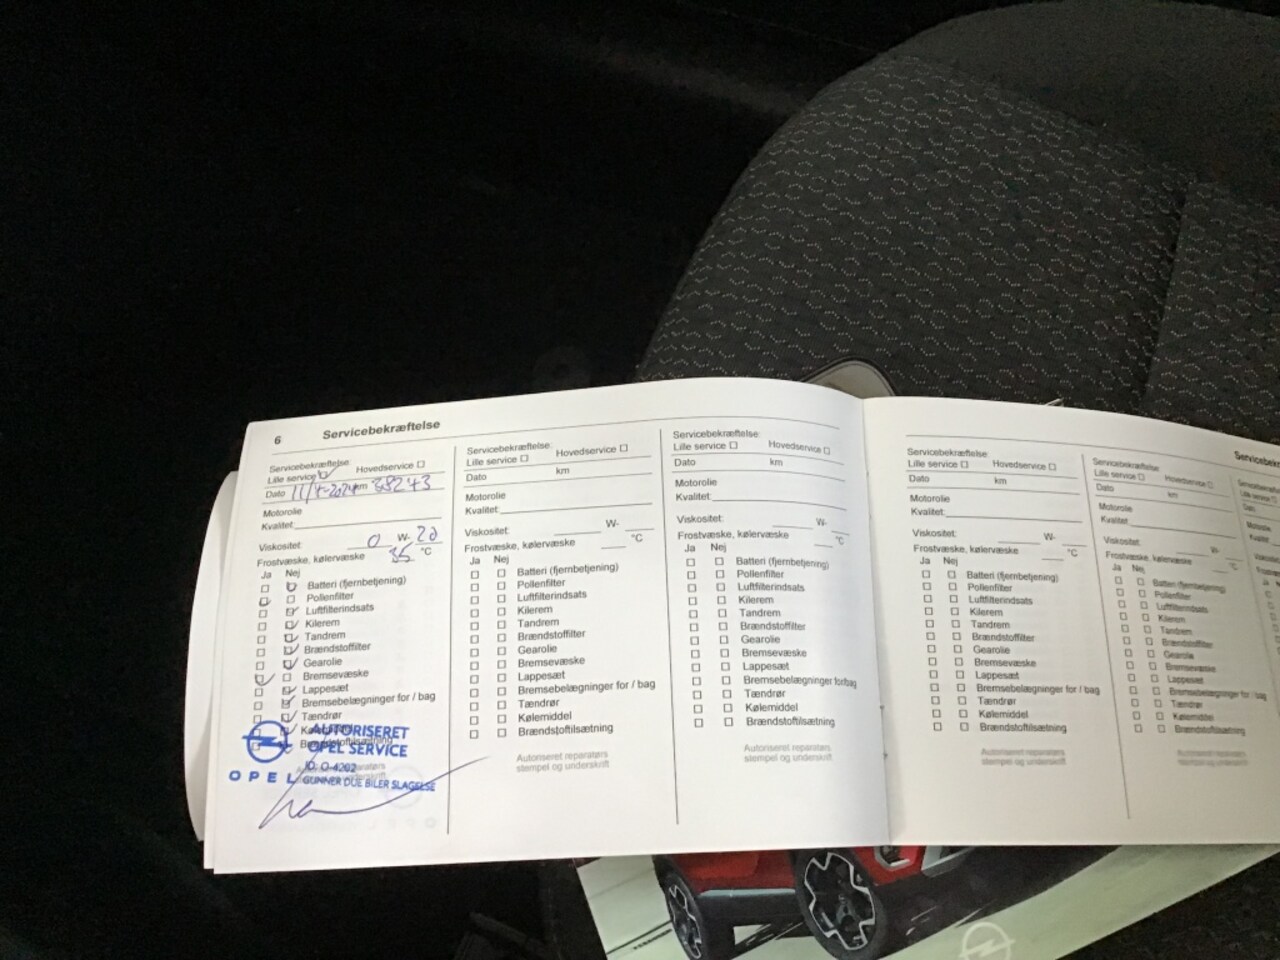 6 Servicebekræftelse
Servicebekræftelse:
Lille service Hovedservice
Dato 11/4-2024 km 38243
Motorolie
Kvalitet:
Viskositet: 0 W- 20
Frostvæske, kølervæske 35 °C
Ja Nej
Batteri (fjernbetjening)
Pollenfilter
Luftfilterindsats
Kilerem
Tandrem
Brændstoffilter
Gearolie
Bremsevæske
Lappesæt
Bremsebelægninger for / bag
Tændrør
AUTORISERET
OPEL SERVICE
ID: O-4202
OPEL GUNNER DUE BILER SLAGELSE
Servicebekræftelse:
Lille service Hovedservice
Dato km
Motorolie
Kvalitet:
Viskositet: W-
Frostvæske, kølervæske °C
Ja Nej
Batteri (fjernbetjening)
Pollenfilter
Luftfilterindsats
Kilerem
Tandrem
Brændstoffilter
Gearolie
Bremsevæske
Lappesæt
Bremsebelægninger for / bag
Tændrør
Kølemiddel
Brændstoftilsætning
Autoriseret reparatørs
stempel og underskrift
Servicebekræftelse:
Lille service Hovedservice
Dato km
Motorolie
Kvalitet:
Viskositet: W-
Frostvæske, kølervæske °C
Ja Nej
Batteri (fjernbetjening)
Pollenfilter
Luftfilterindsats
Kilerem
Tandrem
Brændstoffilter
Gearolie
Bremsevæske
Lappesæt
Bremsebelægninger for/bag
Tændrør
Kølemiddel
Brændstoftilsætning
Autoriseret reparatørs
stempel og underskrift
Servicebekræftelse:
Lille service Hovedservice
Dato km
Motorolie
Kvalitet:
Viskositet: W-
Frostvæske, kølervæske °C
Ja Nej
Batteri (fjernbetjening)
Pollenfilter
Luftfilterindsats
Kilerem
Tandrem
Brændstoffilter
Gearolie
Bremsevæske
Lappesæt
Bremsebelægninger for / bag
Tændrør
Kølemiddel
Brændstoftilsætning
Autoriseret reparatørs
stempel og underskrift
Servicebekræftelse:
Lille service Hovedservice
Dato km
Motorolie
Kvalitet:
Viskositet: W-
Frostvæske, kølervæske °C
Ja Nej
Batteri (fjernbetjening)
Pollenfilter
Luftfilterindsats
Kilerem
Tandrem
Brændstoffilter
Gearolie
Bremsevæske
Lappesæt
Bremsebelægninger for / bag
Tændrør
Kølemiddel
Brændstoftilsætning